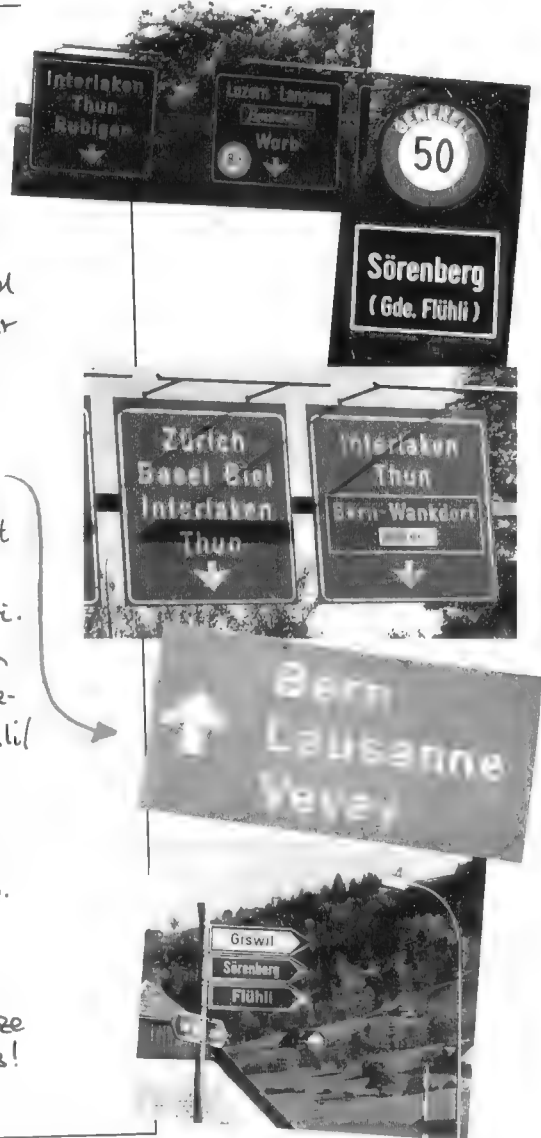 Interlaken
Thun
Rubigen
Luzern Langnau
Worb
GENERELL
50
Sörenberg
(Gde. Flühli)
t
i.
Zürich
Basel Biel
Interlaken
Thun
Interlaken
Thun
Bern-Wankdorf
Bern
Lausanne
Vevey
Giswil
Sörenberg
Flühli
ze
s!